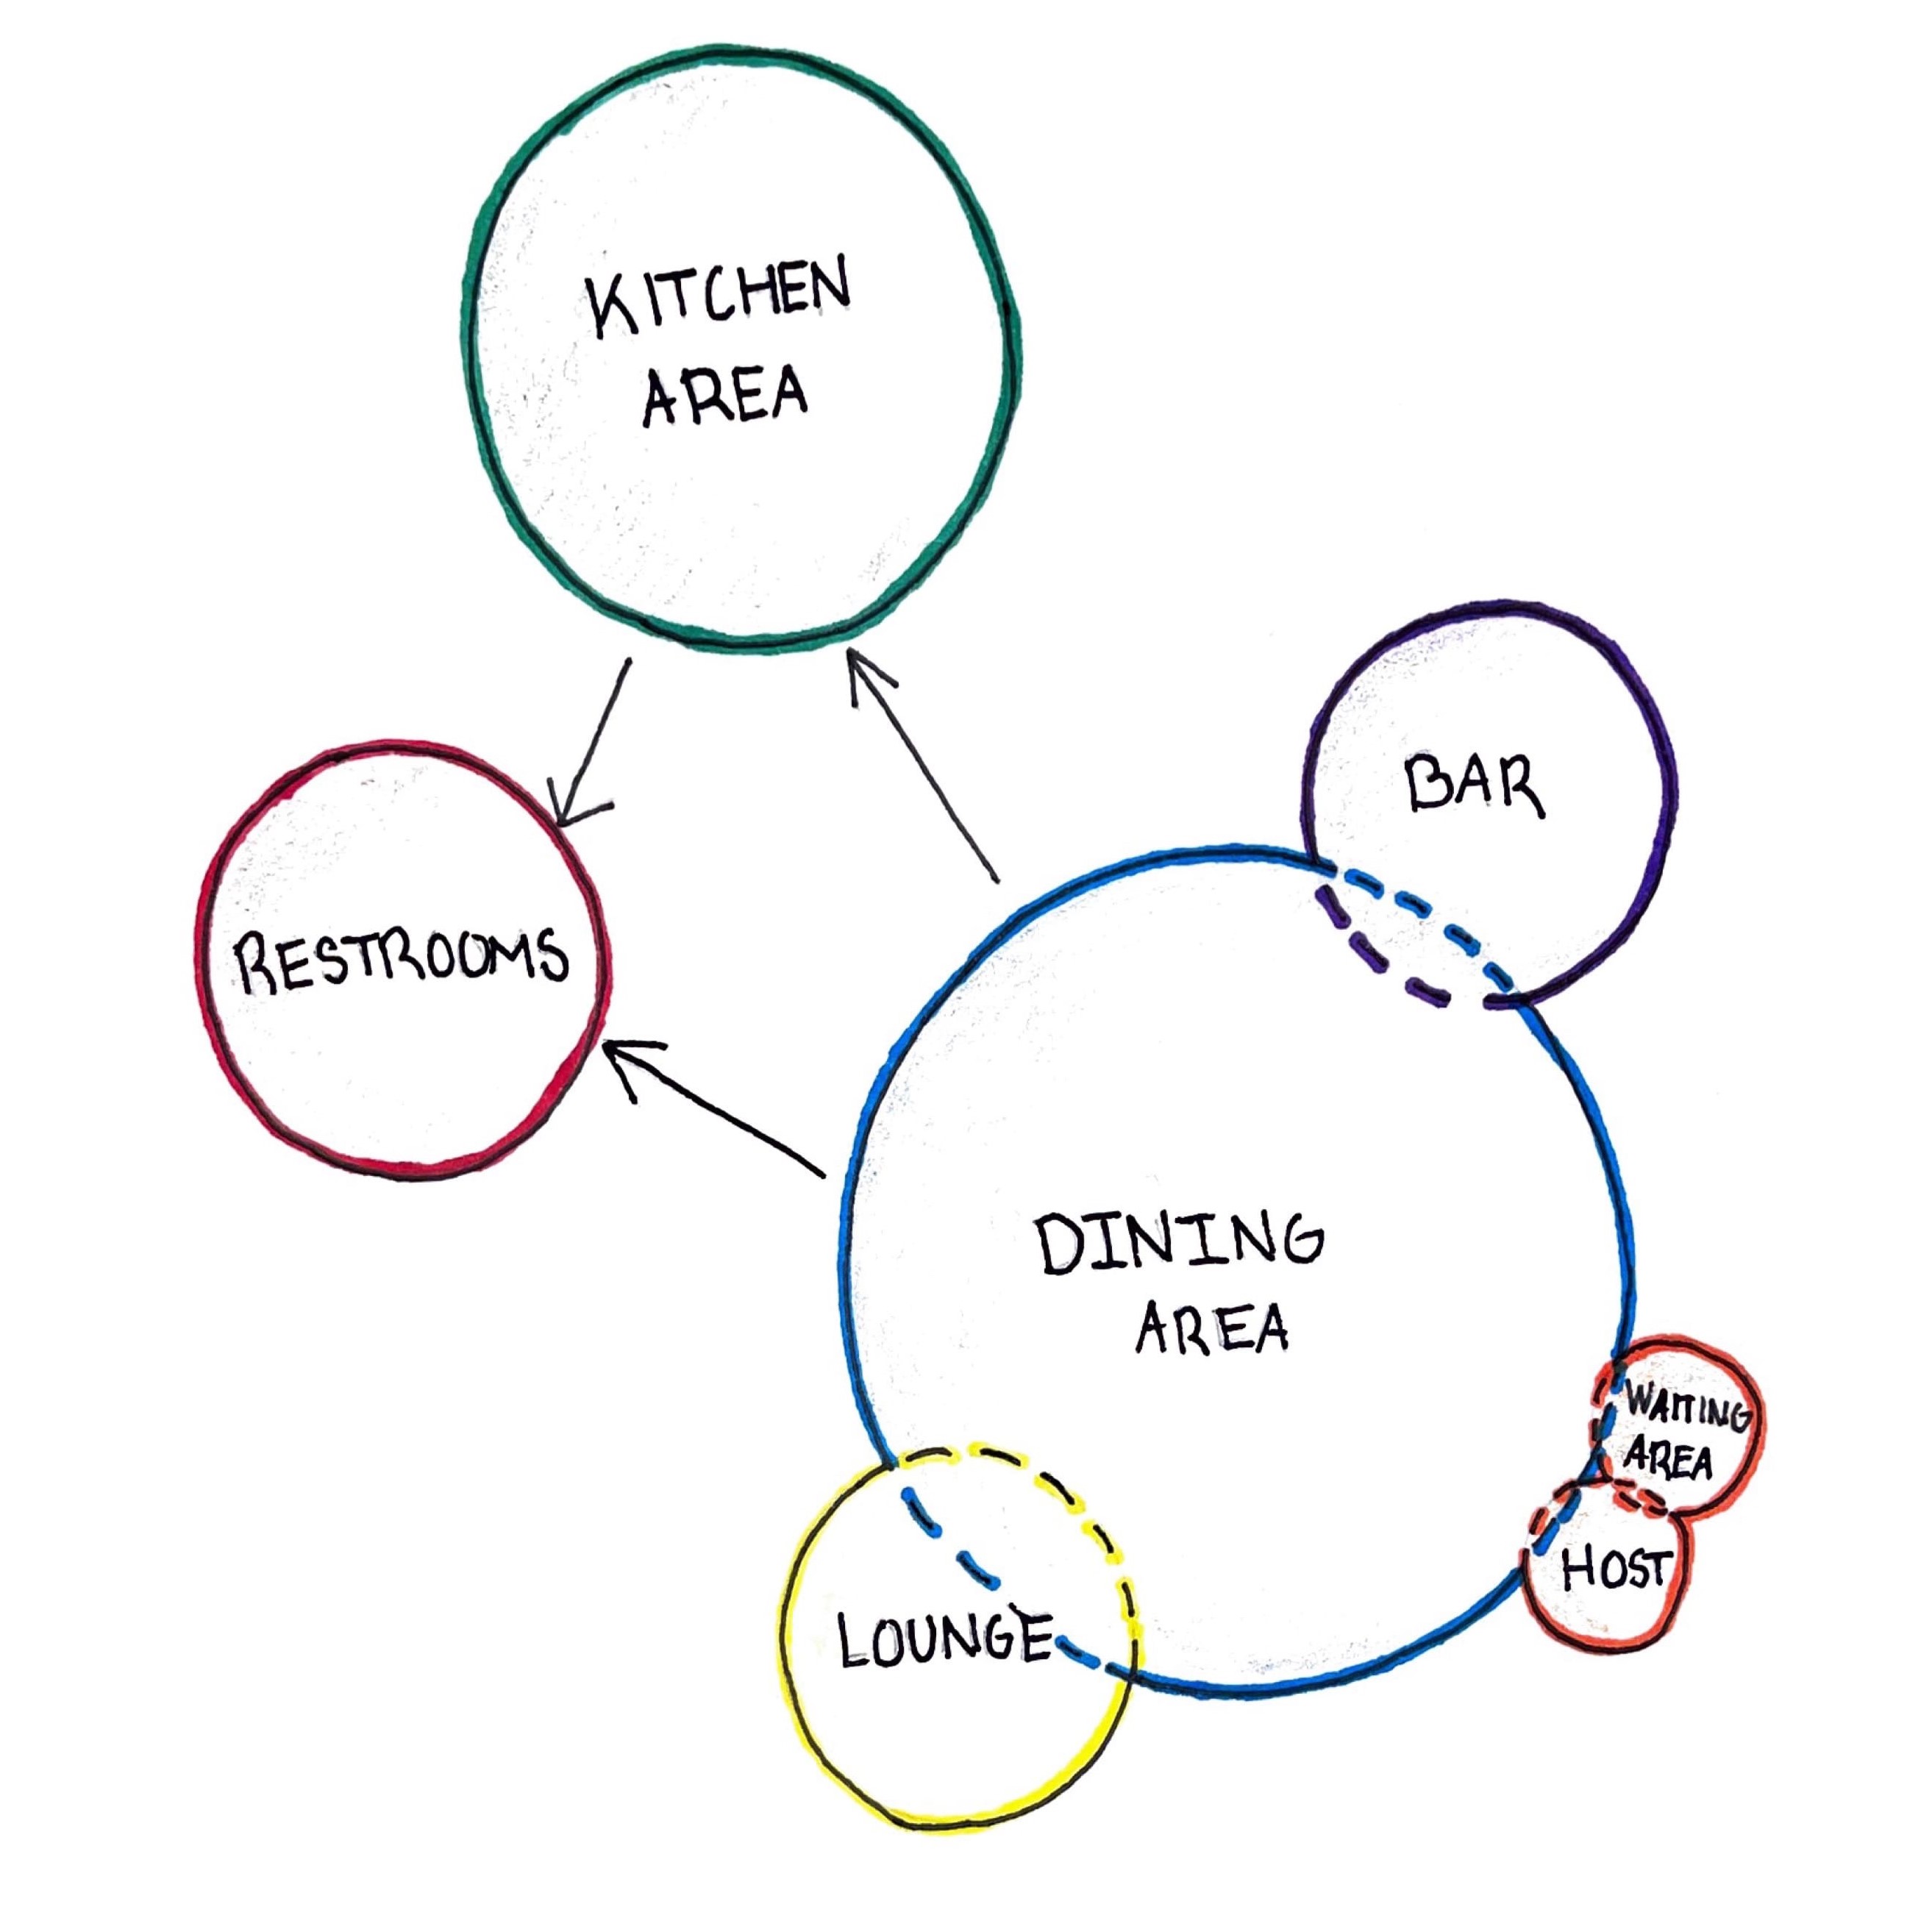 KITCHEN
AREA
BAR
RESTROOMS
DINING
AREA
WAITING
AREA
HOST
LOUNGE